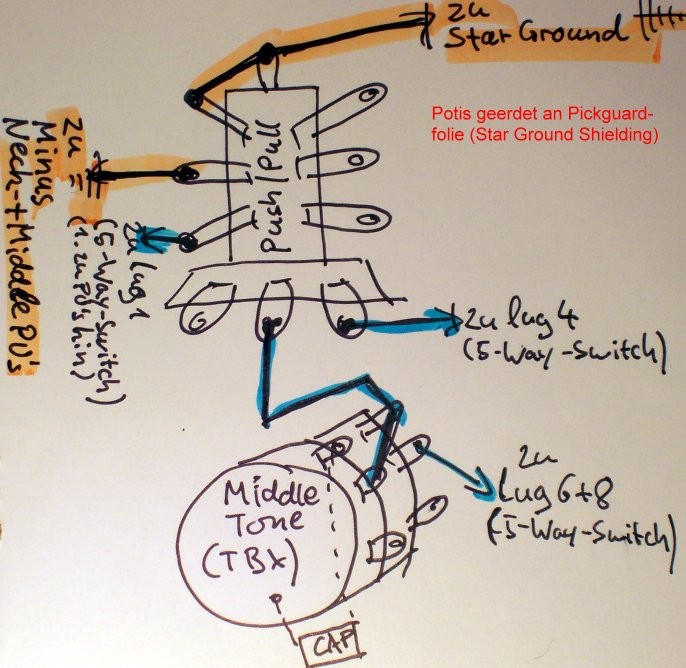 zu
Star Ground
Potis geerdet an Pickguard-
folie (Star Ground Shielding)
Push/Pull
zu =
Minus
Neck-+Middle PU's
zu lug 1
(5-Way-Switch)
(1. zu PU's hin)
zu lug 4
(5-Way-Switch)
Middle
Tone
(TBX)
zu
Lug 6+8
(5-Way-Switch)
CAP